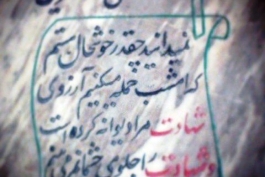 نمیدانید چقدر خوشحال هستم
که امشب حمله میکنیم آرزوی
شهادت مرا دیوانه کرده است
و شهادت را جلوی چشمانم می بینم